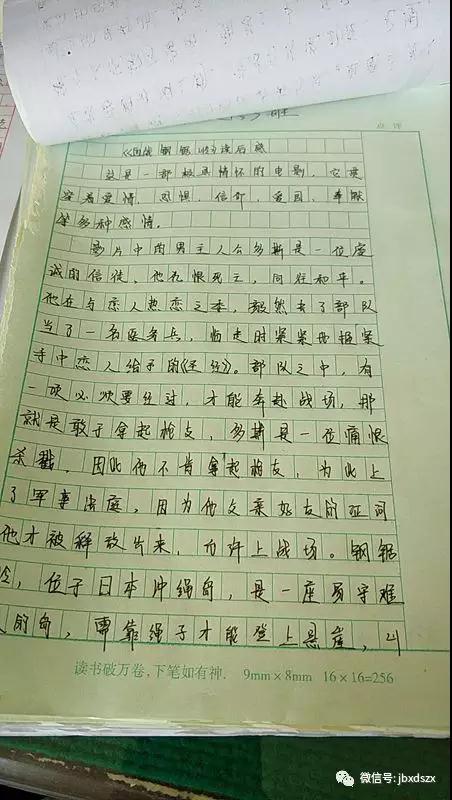 点评
《血战钢锯岭》读后感
这是一部极具情怀的电影，它夹
容着爱情，恐惧，信仰，爱国，奉献
等多种感情。
影片中的男主人公多斯是一位虔
诚的信徒，他仇恨死亡，向往和平。
他在与恋人热恋之季，毅然去了部队
当了一名医务兵，临走时紧紧地握紧
手中恋人给予的《圣经》。部队之中，有
一项必须要经过，才能奔赴战场，那
就是敢于拿起枪支，多斯是一位痛恨
杀戮，因此他不肯拿起枪支，为此上
了军事法庭，因为他父亲好友的
他才被释放出来，允许上战场。钢锯
岭，位于日本冲绳岛，是一座易守难
的岛，需靠绳子才能登上悬崖，
读书破万卷，下笔如有神. 9mm×8mm 16×16=256
微信号: jbxdszx